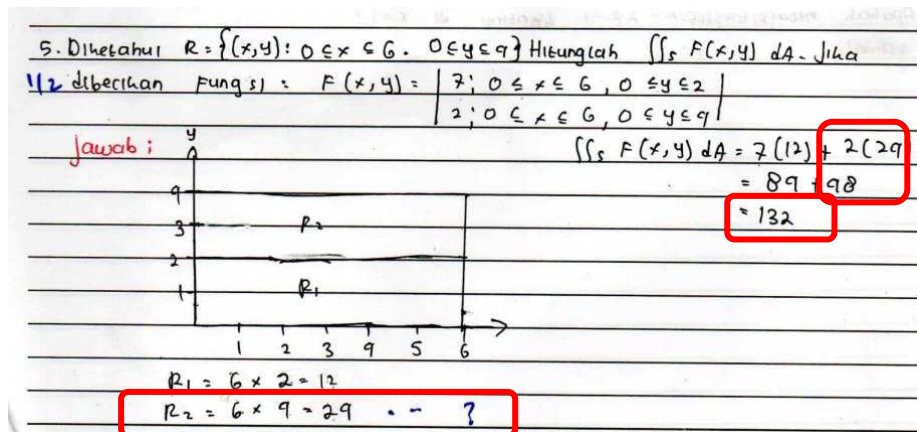 5. Diketahui R = {(x,y): 0 ≤ x ≤ 6. 0 ≤ y ≤ 9} Hitunglah ∬s F(x,y) dA. Jika
1/2 diberikan Fungsi : F(x,y) = | 7; 0 ≤ x ≤ 6, 0 ≤ y ≤ 2 |
| 2; 0 ≤ x ≤ 6, 0 ≤ y ≤ 9 |
Jawab ;
∬s F(x,y) dA = 7(12) + 2(29
= 89 + 98
= 132
y
9
3
2
1
R2
R1
1 2 3 9 5 6
R1 = 6 × 2 = 12
R2 = 6 × 9 = 29 . - ?